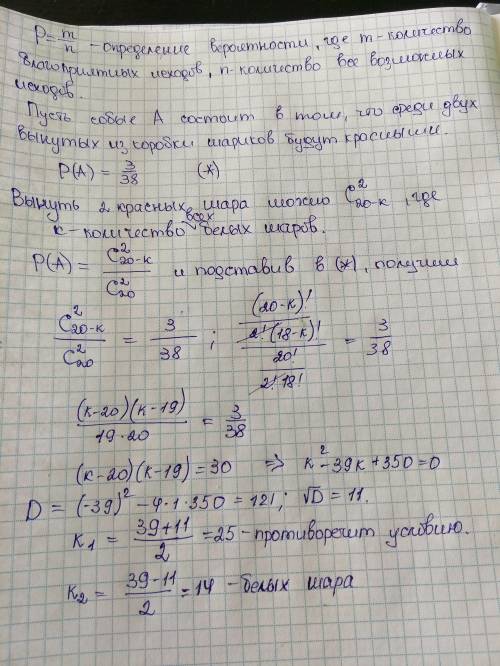 P = m/n - определение вероятности, где m - количество
благоприятных исходов, n - количество все возможных
исходов.
Пусть собые A состоит в том, что среди двух
вынутых из коробки шариков будут красными.
P(A) = 3/38 (*)
Вынуть 2 красных шара можно C²₂₀₋ₖ, где
к - количество всех белых шаров.
P(A) = C²₂₀₋ₖ / C²₂₀ и подставив в (*), получим
C²₂₀₋ₖ / C²₂₀ = 3/38 ; ((20-к)! / 2!·(18-к)!) / (20! / 2!·18!) = 3/38
(к-20)(к-19) / 19·20 = 3/38
(к-20)(к-19) = 30 => к² - 39к + 350 = 0
D = (-39)² - 4·1·350 = 121; √D = 11.
к₁ = (39+11)/2 = 25 - противоречит условию.
к₂ = (39-11)/2 = 14 - белых шара